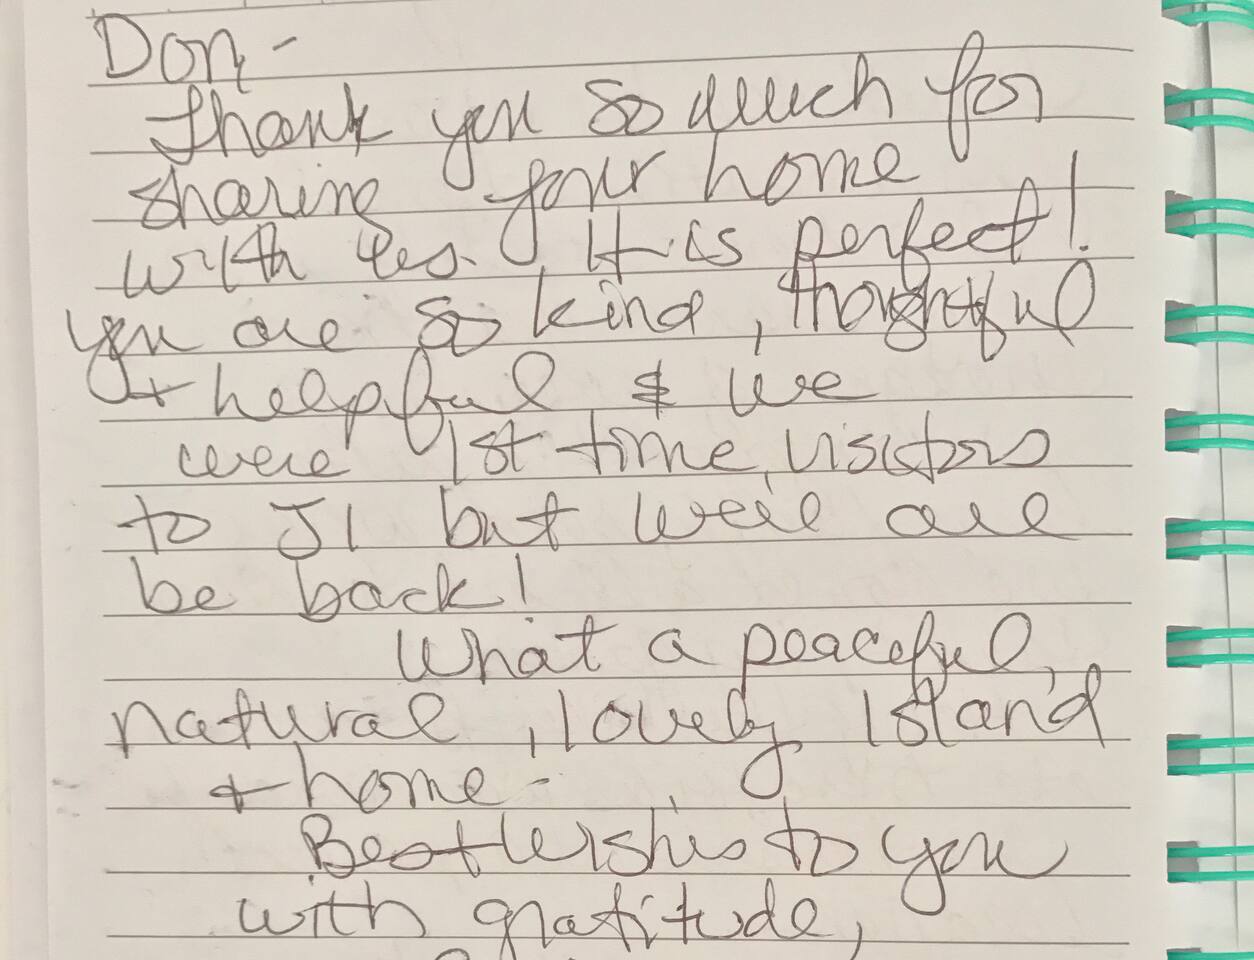 Don -
Thank you so much for
sharing your home
with us. It is perfect!
you are so kind, thoughtful
+ helpful & we
were 1st time visitors
to JI but we'll are
be back!
What a peaceful,
natural, lovely Island
+ home -
Best Wishes to you
with gratitude,